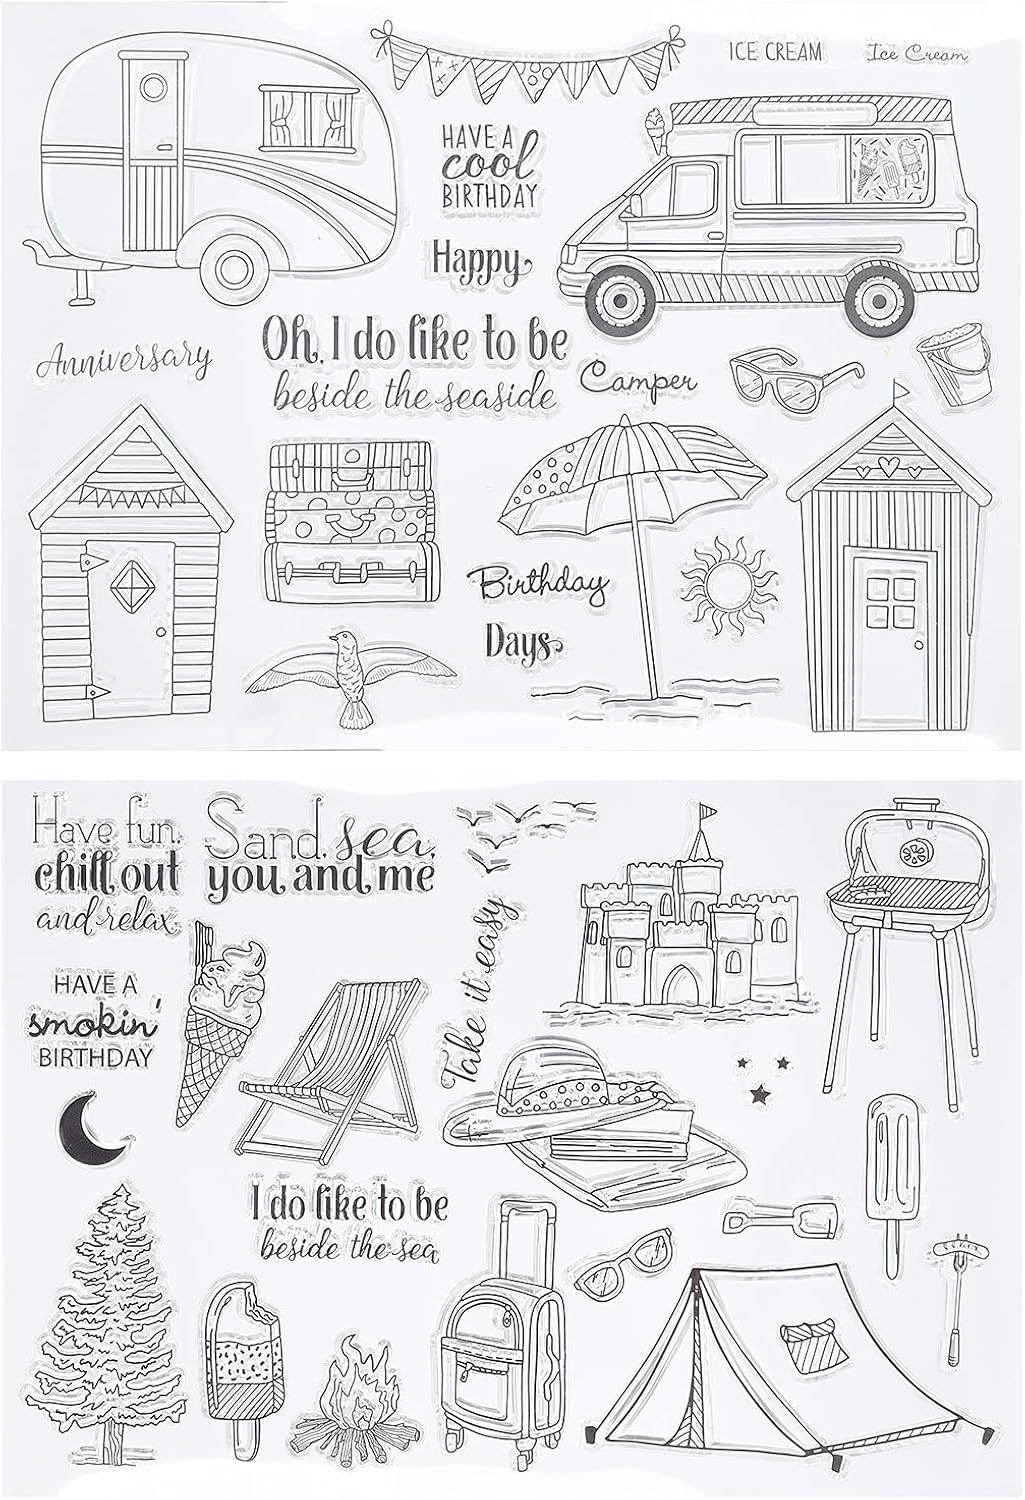 ICE CREAM
Ice Cream
HAVE A
cool
BIRTHDAY
Happy
Oh, I do like to be
beside the seaside
Anniversary
Camper
Birthday
Days
Have fun,
chill out
and relax
Sand, sea,
you and me
Take it easy
HAVE A
smokin'
BIRTHDAY
I do like to be
beside the sea